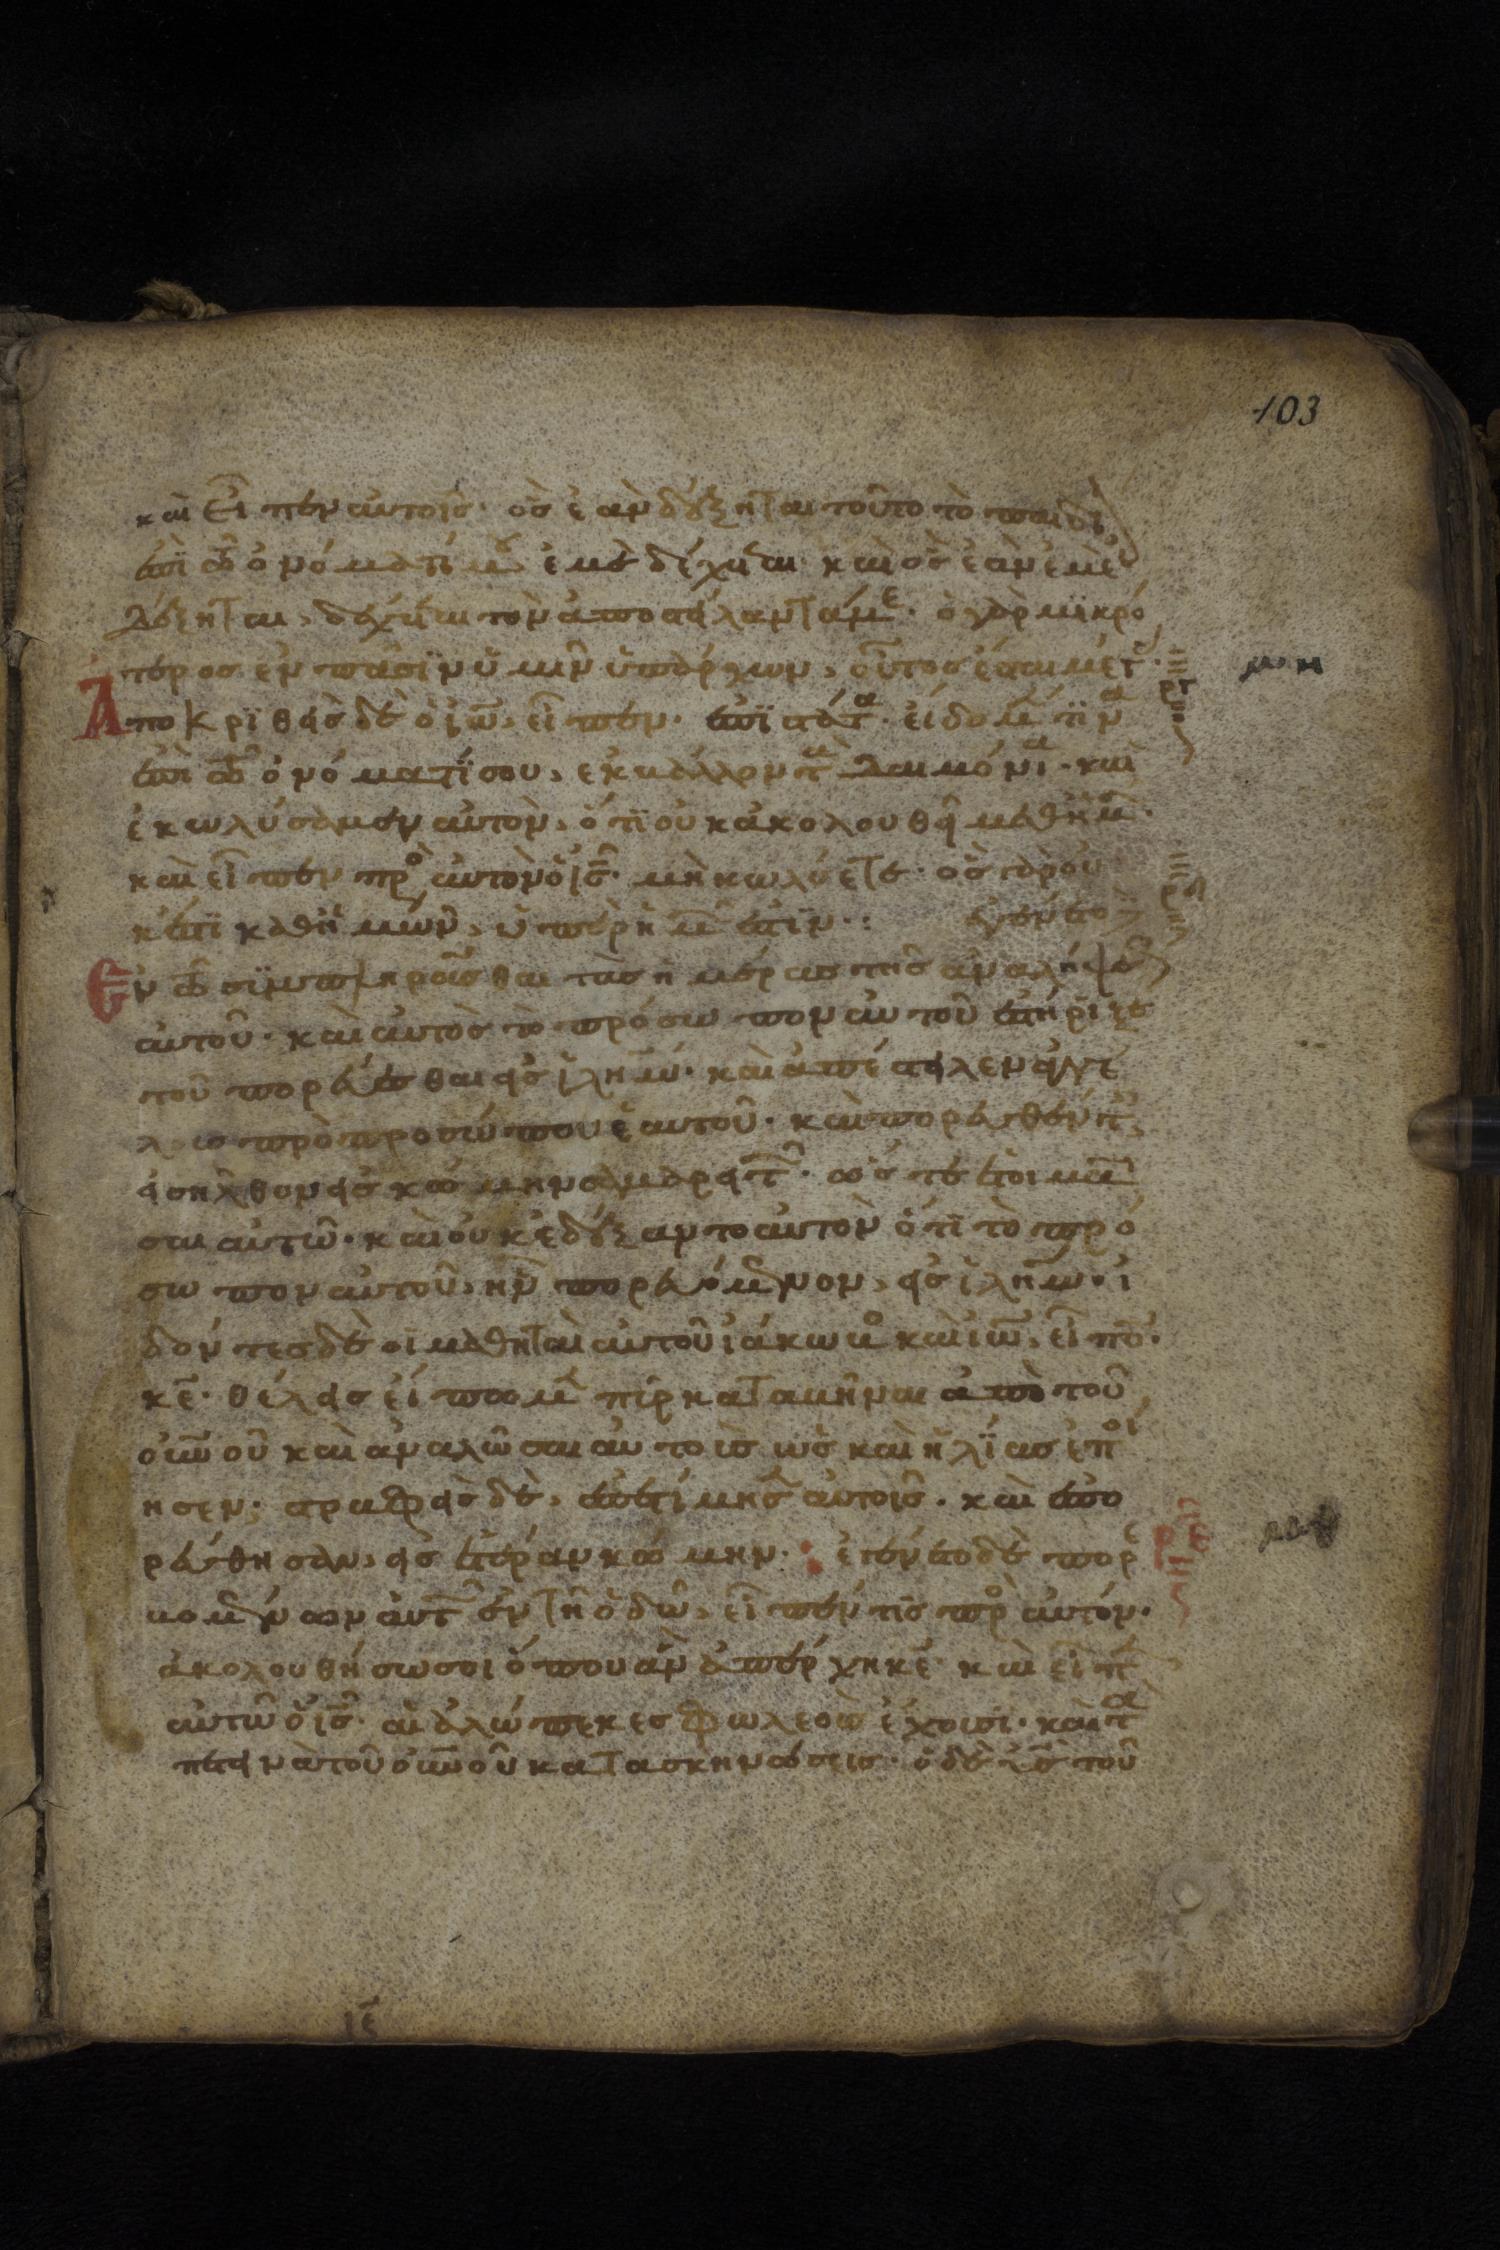 103
καὶ εἶπεν αὐτοῖς· ὃς ἐὰν δέξηται τοῦτο τὸ παιδί
ἐπὶ τῶ ὀνόματί μου ἐμὲ δέχεται· καὶ ὃς ἐὰν ἐμὲ
δέξηται, δέχεται τὸν ἀποστείλαντά με· ὁ γὰρ μϊκρό
τερος ἐν πᾶσϊν ὑμῖν ὑπάρχων, οὗτος ἔσται μέγ·
Ἀποκρϊθεὶς δὲ ὁ ἰω, εἶπεν· ἐπϊστάτα· εἴδομέν τϊνα
ἐπὶ τῶ ὀνόματϊ σου, ἐκβάλλοντα δαιμόνια· καὶ
ἐκωλύσαμεν αὐτὸν, ὅτϊ οὐκ ἀκολουθεῖ μεθ' ἡμῶν·
καὶ εἶπεν πρὸ αὐτὸν ὁ ις· μὴ κωλύετε· ὃς γὰρ οὐ
κ ἔστϊ καθ' ἡμῶν, ὑπὲρ ἡμῶν ἐστϊν·: ἐγένετο
Ἐν τῶ συμπληροῦσθαι τὰς ἡμέρας τῆς ἀναλήψε
αὐτοῦ· καὶ αὐτὸς τὸ πρόσωπον αὐτοῦ ἐστήριξε
τοῦ πορεύεσθαι εἰς ἰλημ· καὶ ἀπέστειλεν ἀγγέ
λους πρὸ προσώπου ἑαυτοῦ· καὶ πορευθέντ,
εἰσῆλθον εἰς κώμην σαμαρειτ· ὥστε ἑτοιμά
σαι αὐτῶ· καὶ οὐκ ἐδέξαντο αὐτὸν ὅτϊ τὸ πρό
σωπον αὐτοῦ, ἦν πορευόμενον, εἰς ἰλημ· ἰ
δόντες δὲ οἱ μαθηταὶ αὐτοῦ ἰάκωβο καὶ ἰω, εἶπο·
κε· θέλεις εἴπωμεν πῦρ καταβῆναι ἀπὸ τοῦ
οὐνοῦ καὶ ἀναλῶσαι αὐτοὺς ὡς καὶ ἠλίας ἐποί
ησεν· στραφεὶς δὲ, ἐπετίμησ αὐτοῖς· καὶ ἐπο
ρεύθησαν, εἰς ἑτέραν κώμην· ἐγένετο δὲ πορε
υομένων αὐτ ἐν τῆ ὁδῶ, εἶπέν τϊς πρὸ αὐτόν·
ἀκολουθήσω σοι ὅπου ἂν ἀπέρχη κε· καὶ εἶπε
αὐτῶ ὁ ις· αἱ ἀλώπεκες φωλεοὺς ἔχουσϊ· καὶ τὰ
πετεινὰ τοῦ οὐνοῦ κατασκηνώσεις· ὁ δὲ υς τοῦ